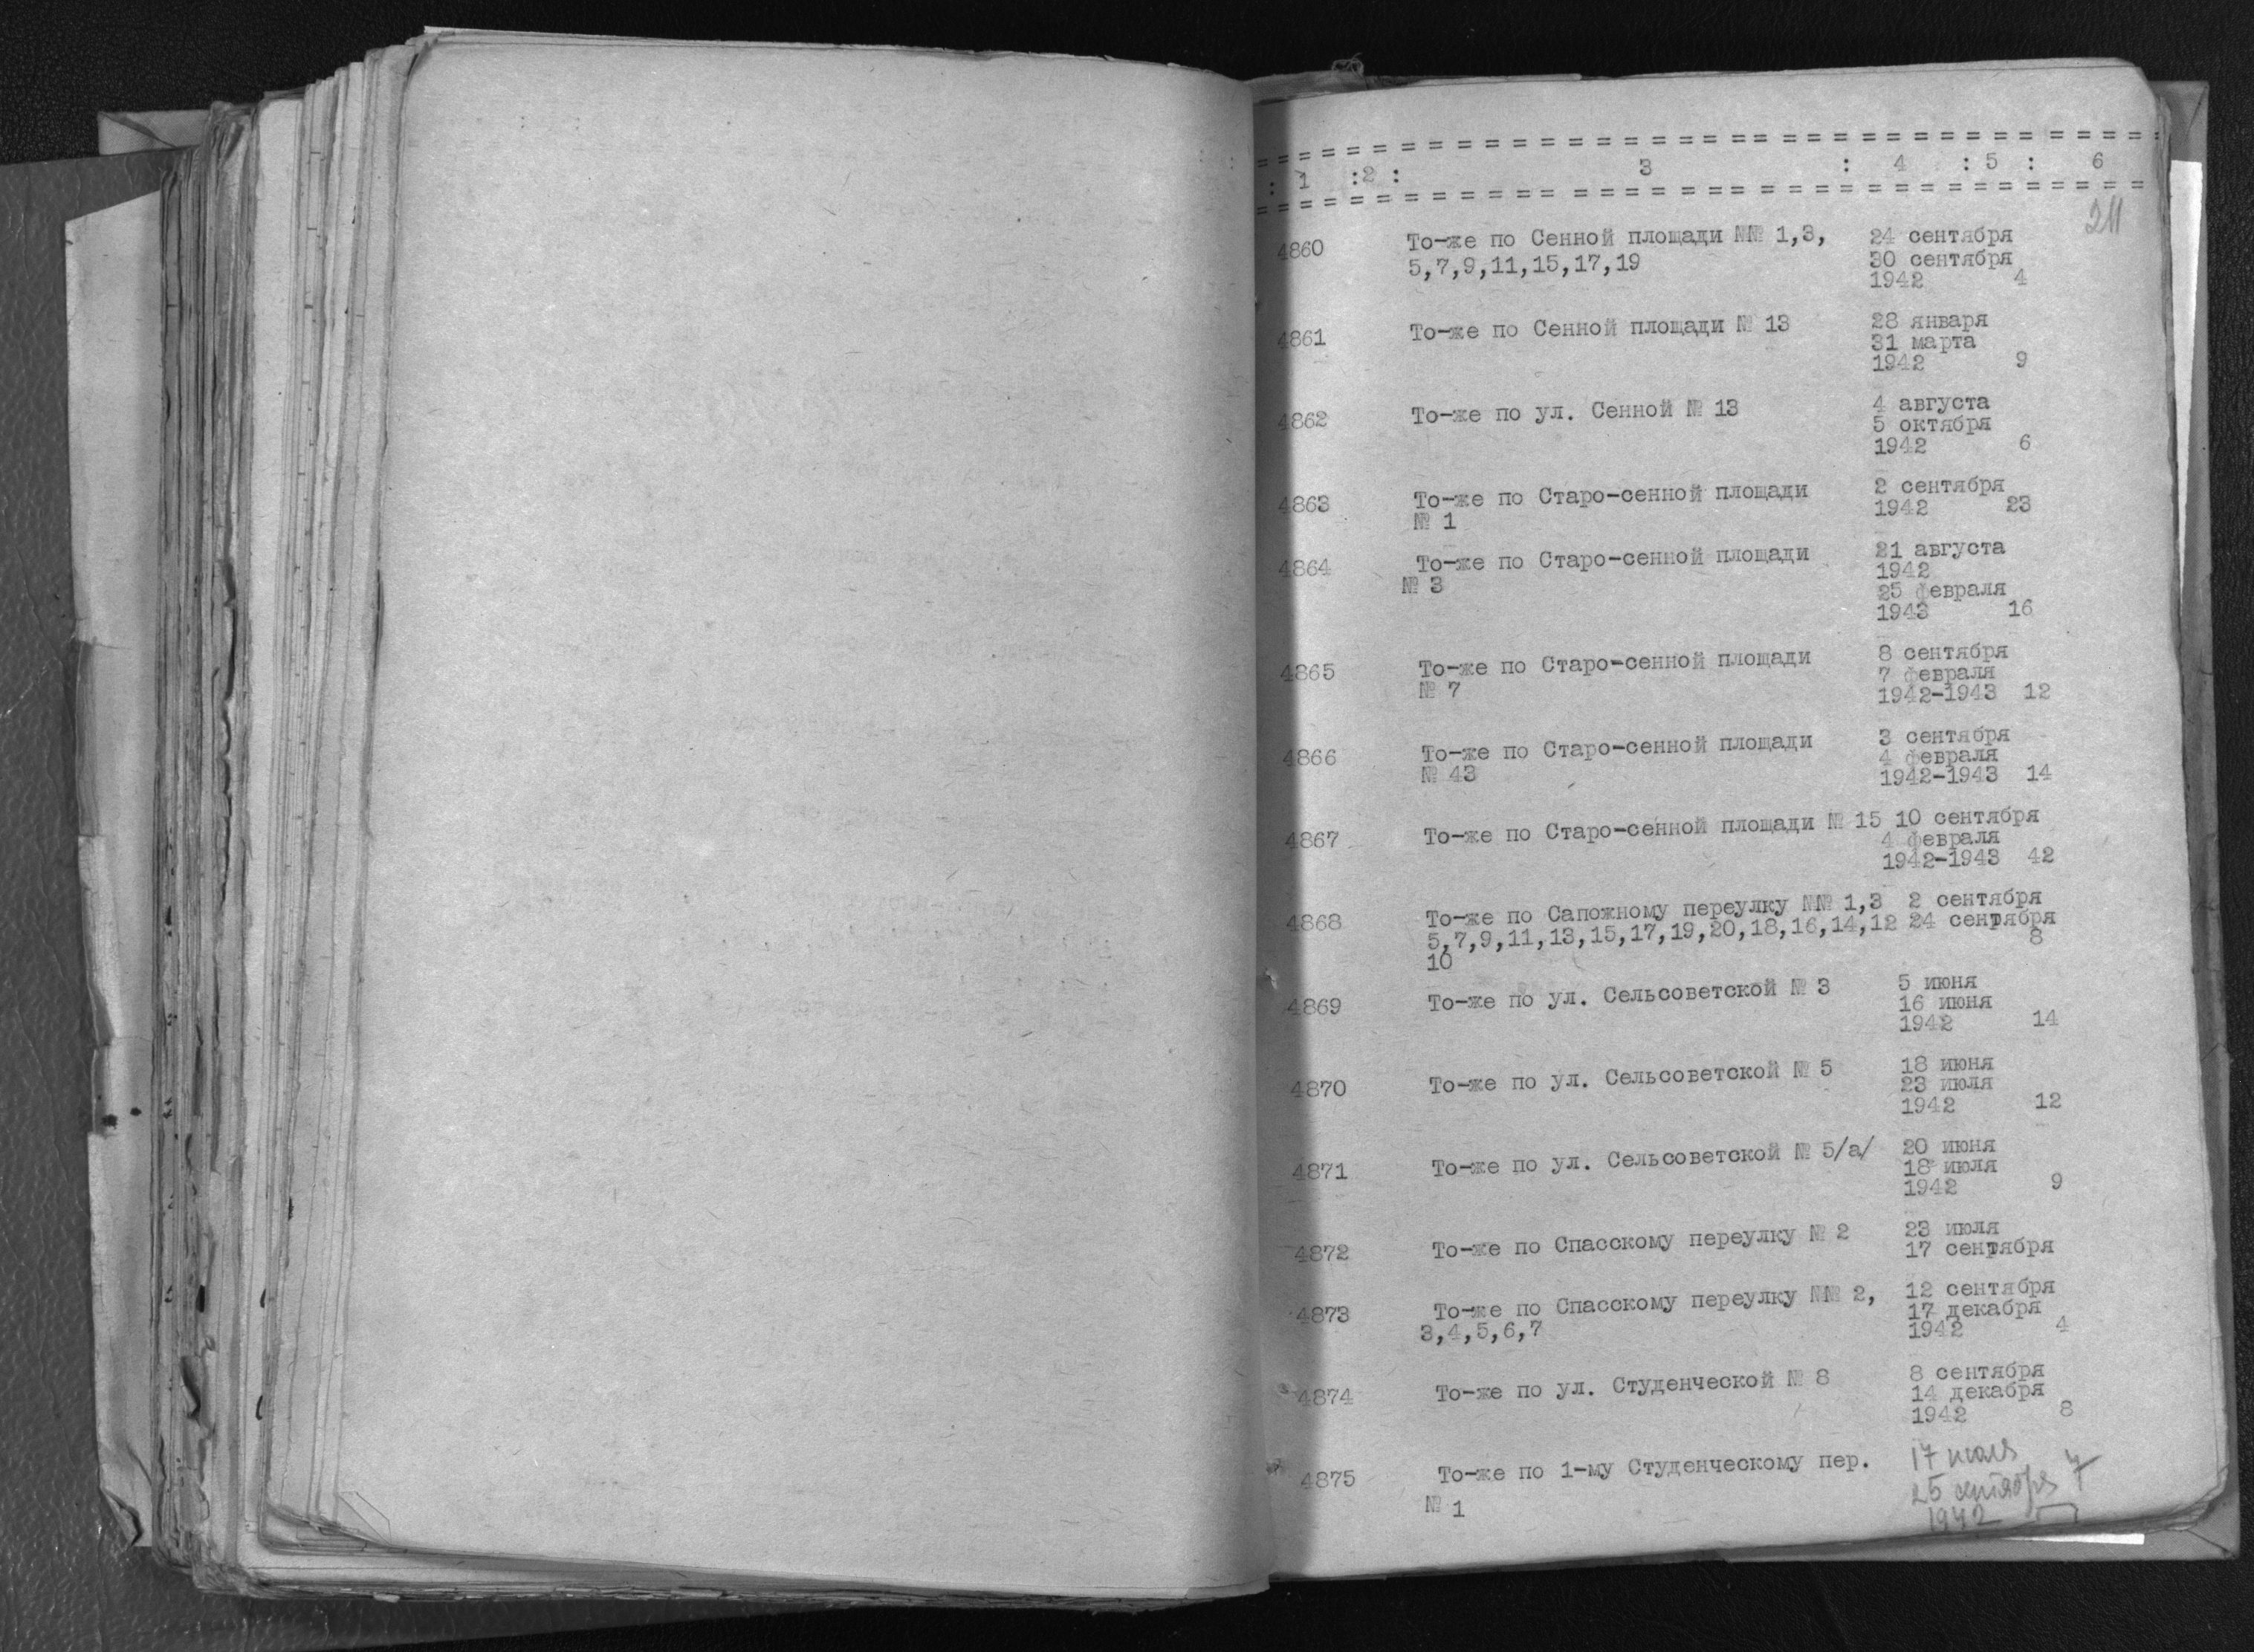 : 1 :2 : 3 : 4 : 5 : 6
211
4860 То-же по Сенной площади №№ 1,3, 24 сентября
5,7,9,11,15,17,19 30 сентября
1942 4
4861 То-же по Сенной площади № 13 28 января
31 марта
1942 9
4862 То-же по ул. Сенной № 13 4 августа
5 октября
1942 6
4863 То-же по Старо-сенной площади 2 сентября
№ 1 1942 23
4864 То-же по Старо-сенной площади 21 августа
№ 3 1942
25 февраля
1943 16
4865 То-же по Старо-сенной площади 8 сентября
№ 7 7 февраля
1942-1943 12
4866 То-же по Старо-сенной площади 3 сентября
№ 43 4 февраля
1942-1943 14
4867 То-же по Старо-сенной площади № 15 10 сентября
4 февраля
1942-1943 42
4868 То-же по Сапожному переулку №№ 1,3 2 сентября
5,7,9,11,13,15,17,19,20,18,16,14,12 24 сентября
10 8
4869 То-же по ул. Сельсоветской № 3 5 июня
16 июня
1942 14
4870 То-же по ул. Сельсоветской № 5 18 июня
23 июля
1942 12
4871 То-же по ул. Сельсоветской № 5/а/ 20 июня
18 июля
1942 9
4872 То-же по Спасскому переулку № 2 23 июля
17 сентября
4873 То-же по Спасскому переулку №№ 2, 12 сентября
3,4,5,6,7 17 декабря
1942 4
4874 То-же по ул. Студенческой № 8 8 сентября
14 декабря
1942 8
4875 То-же по 1-му Студенческому пер. 17 июля
№ 1 25 сентября 7
1942